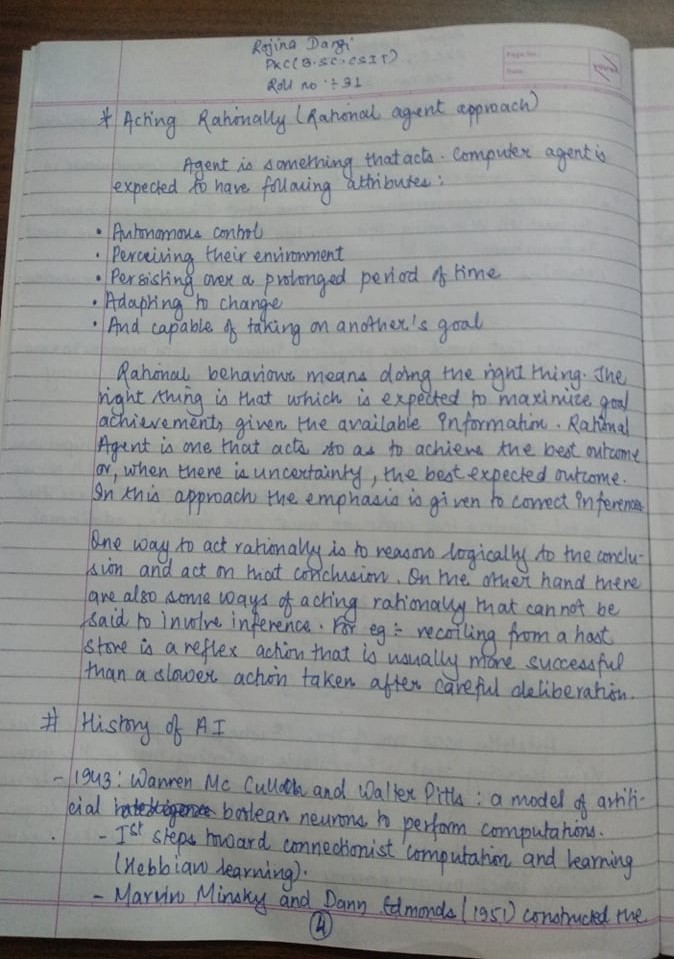 Rojina Dangi
PKC(B.SC.CSIT)
Roll no :- 31
Page No.
Date
* Acting Rationally (Rational agent approach)
Agent is something that acts. Computer agent is
expected to have following attributes:
• Autonomous control
• Perceiving their environment
• Persisting over a prolonged period of time
• Adapting to change
• And capable of taking on another's goal
Rational behaviour means doing the right thing. The
right thing is that which is expected to maximize goal
achievement, given the available information. Rational
Agent is one that acts so as to achieve the best outcome
or, when there is uncertainty, the best expected outcome.
In this approach the emphasis is given to correct inference
One way to act rationally is to reason logically to the conclu-
sion and act on that conclusion. On the other hand there
are also some ways of acting rationally that cannot be
said to involve inference. For eg :- recoiling from a host
stove is a reflex action that is usually more successful
than a slower action taken after careful deliberation.
# History of AI
- 1943: Warren Mc Culloch and Walter Pitts : a model of artifi-
cial boolean neurons to perform computations.
- Ist steps toward connectionist computation and learning
(Hebbian learning).
- Marvin Minsky and Dann Edmonds (1951) constructed the
4